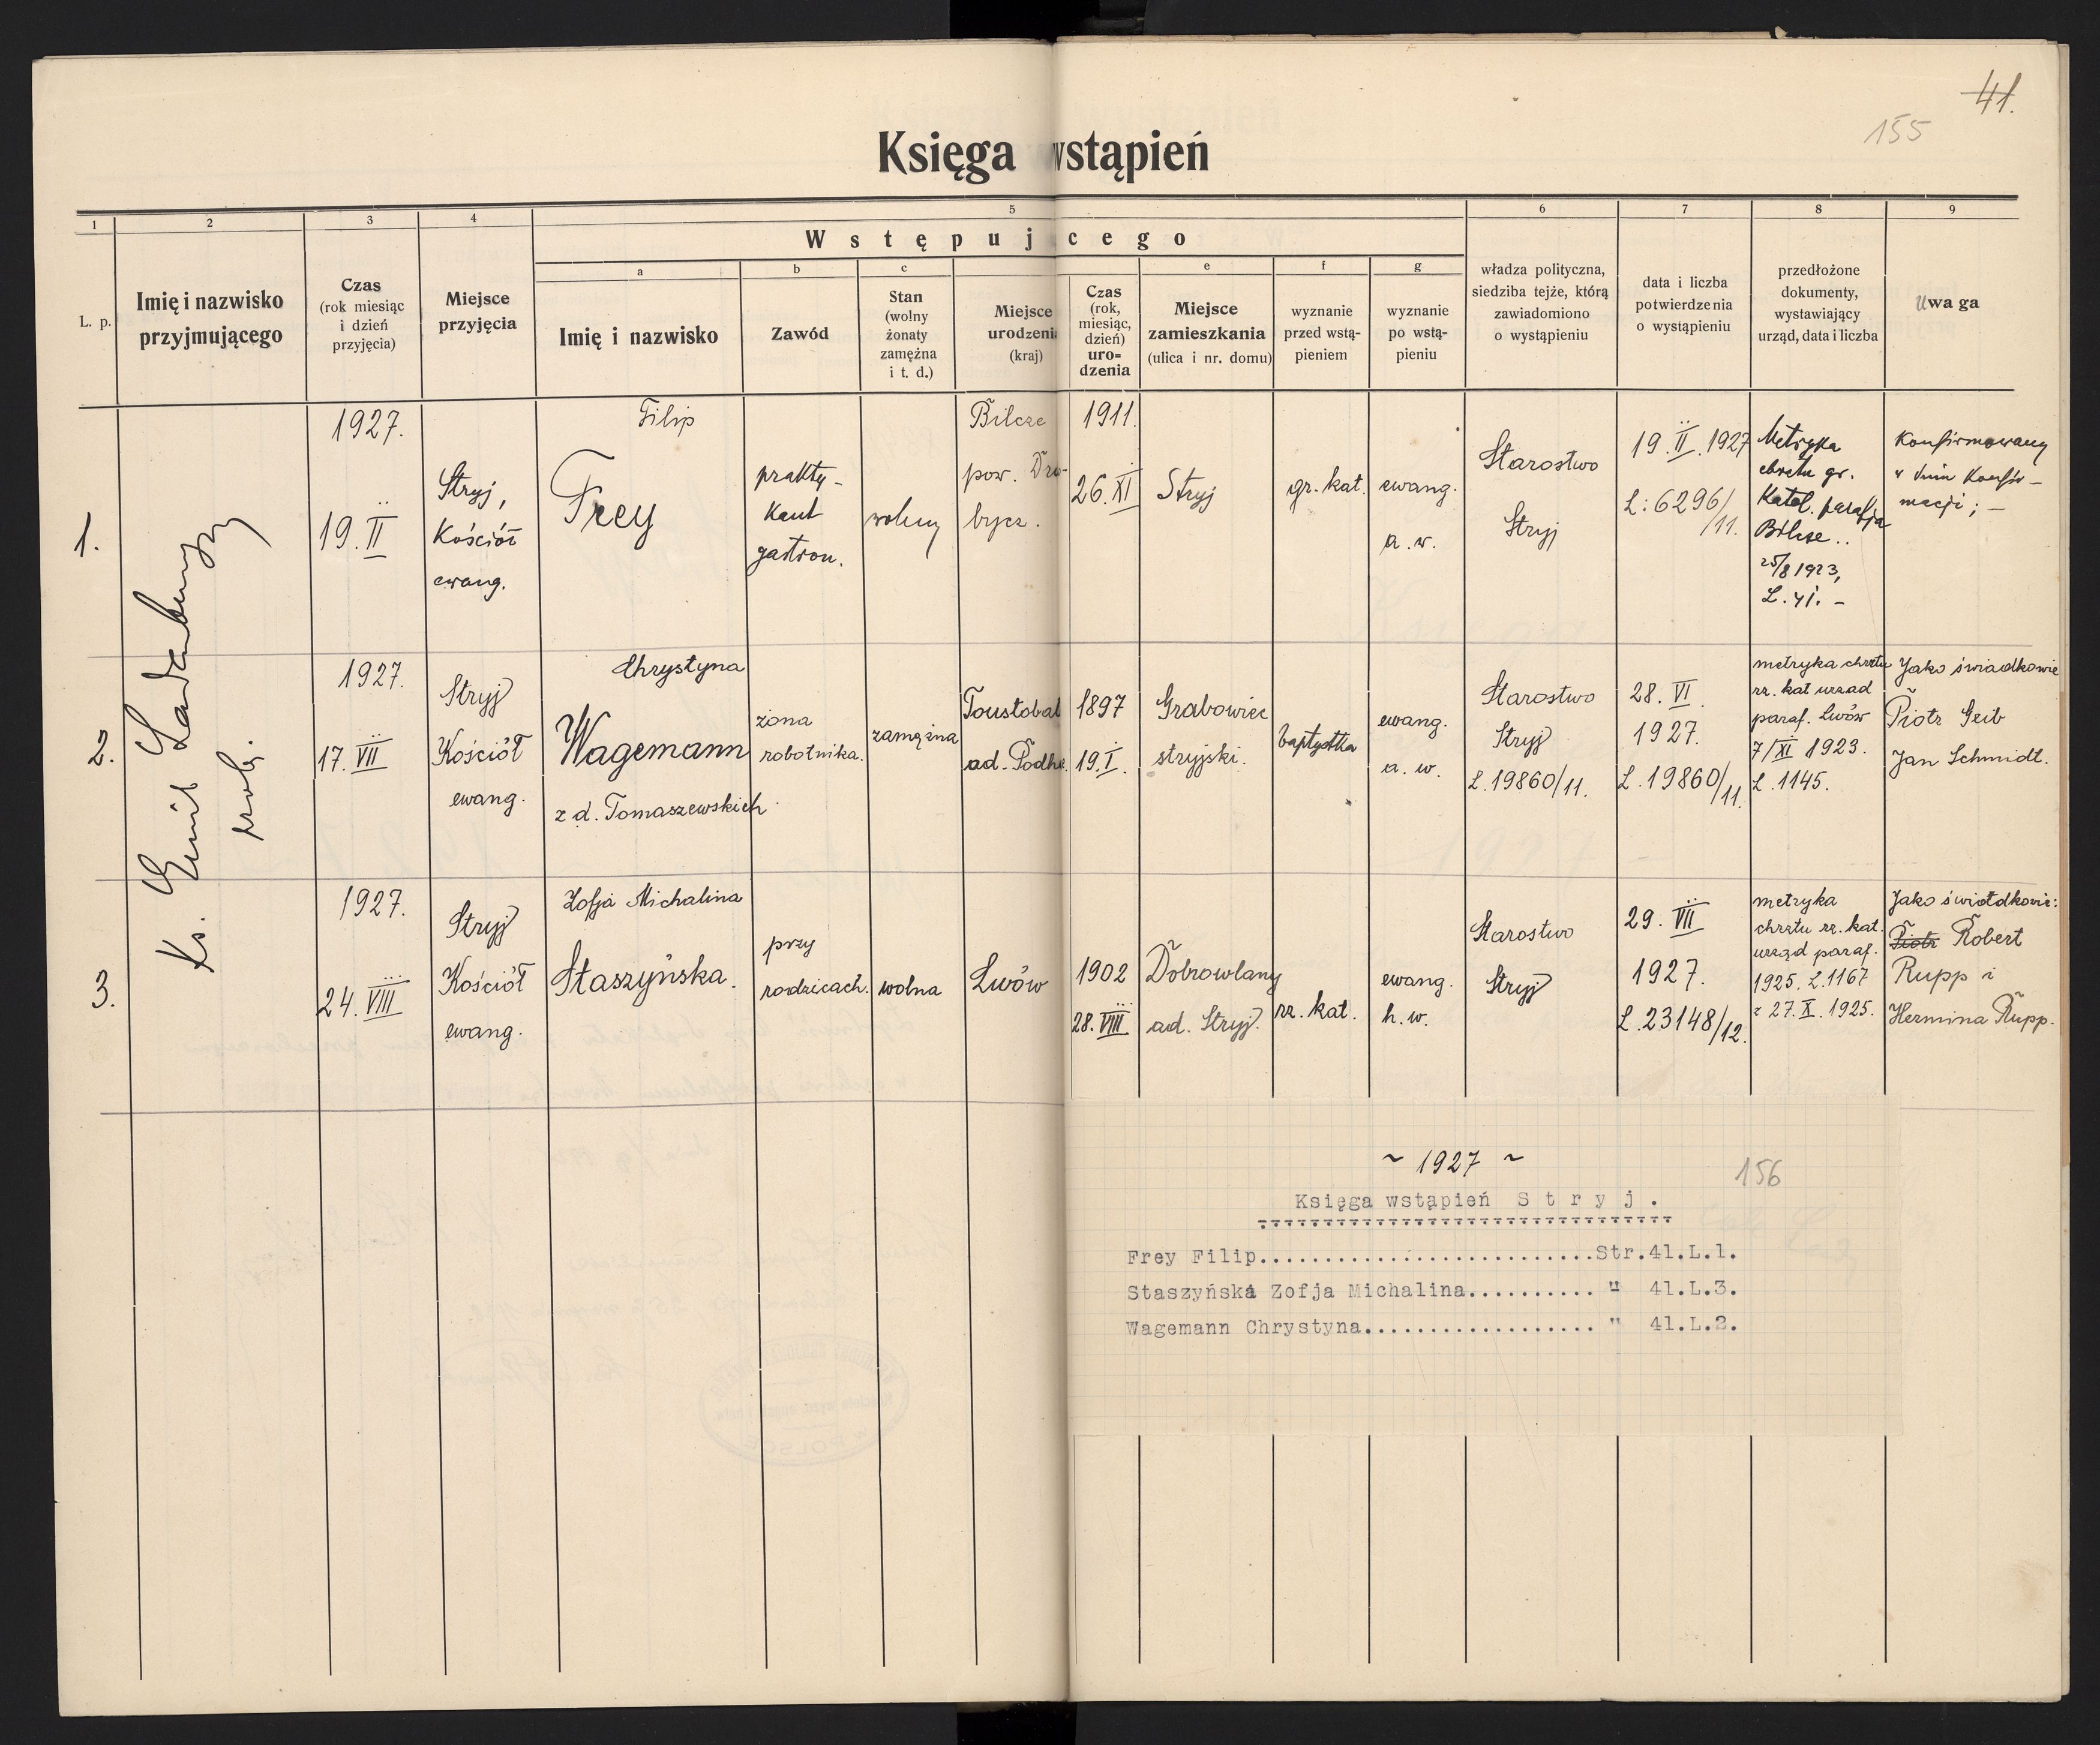 41.
155
Księga wstąpień
1
2
3
4
5
6
7
8
9
Wstępującego
a
b
c
e
f
g
L. p.
Imię i nazwisko
przyjmującego
Czas
(rok miesiąc
i dzień
przyjęcia)
Miejsce
przyjęcia
Imię i nazwisko
Zawód
Stan
(wolny
żonaty
zamężna
i t. d.)
Miejsce
urodzenia
(kraj)
Czas
(rok,
miesiąc,
dzień)
uro=
dzenia
Miejsce
zamieszkania
(ulica i nr. domu)
wyznanie
przed wstą-
pieniem
wyznanie
po wstą-
pieniu
władza polityczna,
siedziba tejże, którą
zawiadomiono
o wystąpieniu
data i liczba
potwierdzenia
o wystąpieniu
przedłożone
dokumenty,
wystawiający
urząd, data i liczba
Uwaga
Ks. Emil Ladenberger
prob.
1.
1927.
19. II
Stryj,
Kościół
ewang.
Filip
Frey
prakty-
kant
gastron.
wolny
Bilcze
pow. Dro-
bycz.
1911.
26. XI
Stryj
gr. kat.
ewang.
a. w.
Starostwo
Stryj
19. II. 1927
L: 6296/
11.
Metryka
chrztu gr.
Katol. parafja
Bilcze..
25/8 1923,
L. 41. -
Konfirmowany
w dniu Konfir-
macji; -
2.
1927.
17. VII
Stryj
Kościół
ewang.
Chrystyna
Wagemann
z d. Tomaszewskich
żona
robotnika.
zamężna
Toustobab
ad. Podh.
1897
19. I.
Grabowiec
stryjski.
baptystka
ewang.
a. w.
Starostwo
Stryj
L. 19860/11.
28. VI.
1927.
L. 19860/11.
metryka chrztu
rz. kat urząd
paraf. Lwów
7/XI 1923.
L. 1145.
Jako świadkowie
Piotr Geib
Jan Schmidt.
3.
1927.
24. VIII
Stryj
Kościół
ewang.
Zofja Michalina
Staszyńska.
przy
rodzicach.
wolna
Lwów
1902
28. VIII
Dobrowlany
ad. Stryj.
rz. kat.
ewang.
h. w.
Starostwo
Stryj
29. VII
1927.
L. 23148/12.
metryka
chrztu rz. kat.
urząd paraf.
1925. L. 1167
z 27. X. 1925.
Jako świadkowie:
Piotr Robert
Rupp i
Hermina Rupp.
~ 1927 ~
156
Księga wstąpień S t r y j .
Frey Filip...........................Str.41.L.1.
Staszyńska Zofja Michalina.......... " 41.L.3.
Wagemann Chrystyna................... " 41.L.2.